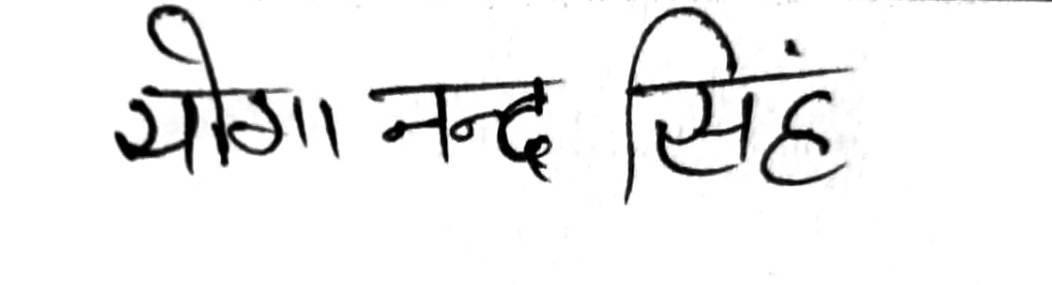 योगा नन्द सिंह